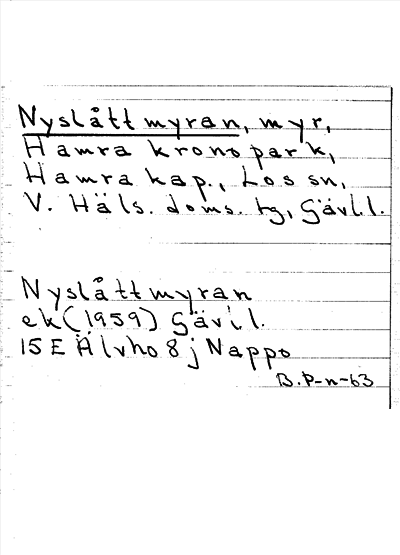 Nyslåttmyran, myr,
Hamra kronopark,
Hamra kap., Los sn,
V. Häls. doms. tg, Gävl.l.
Nyslåttmyran
ek (1959) Gävl l.
15E Älvho 8j Nappo
B.P-n-63